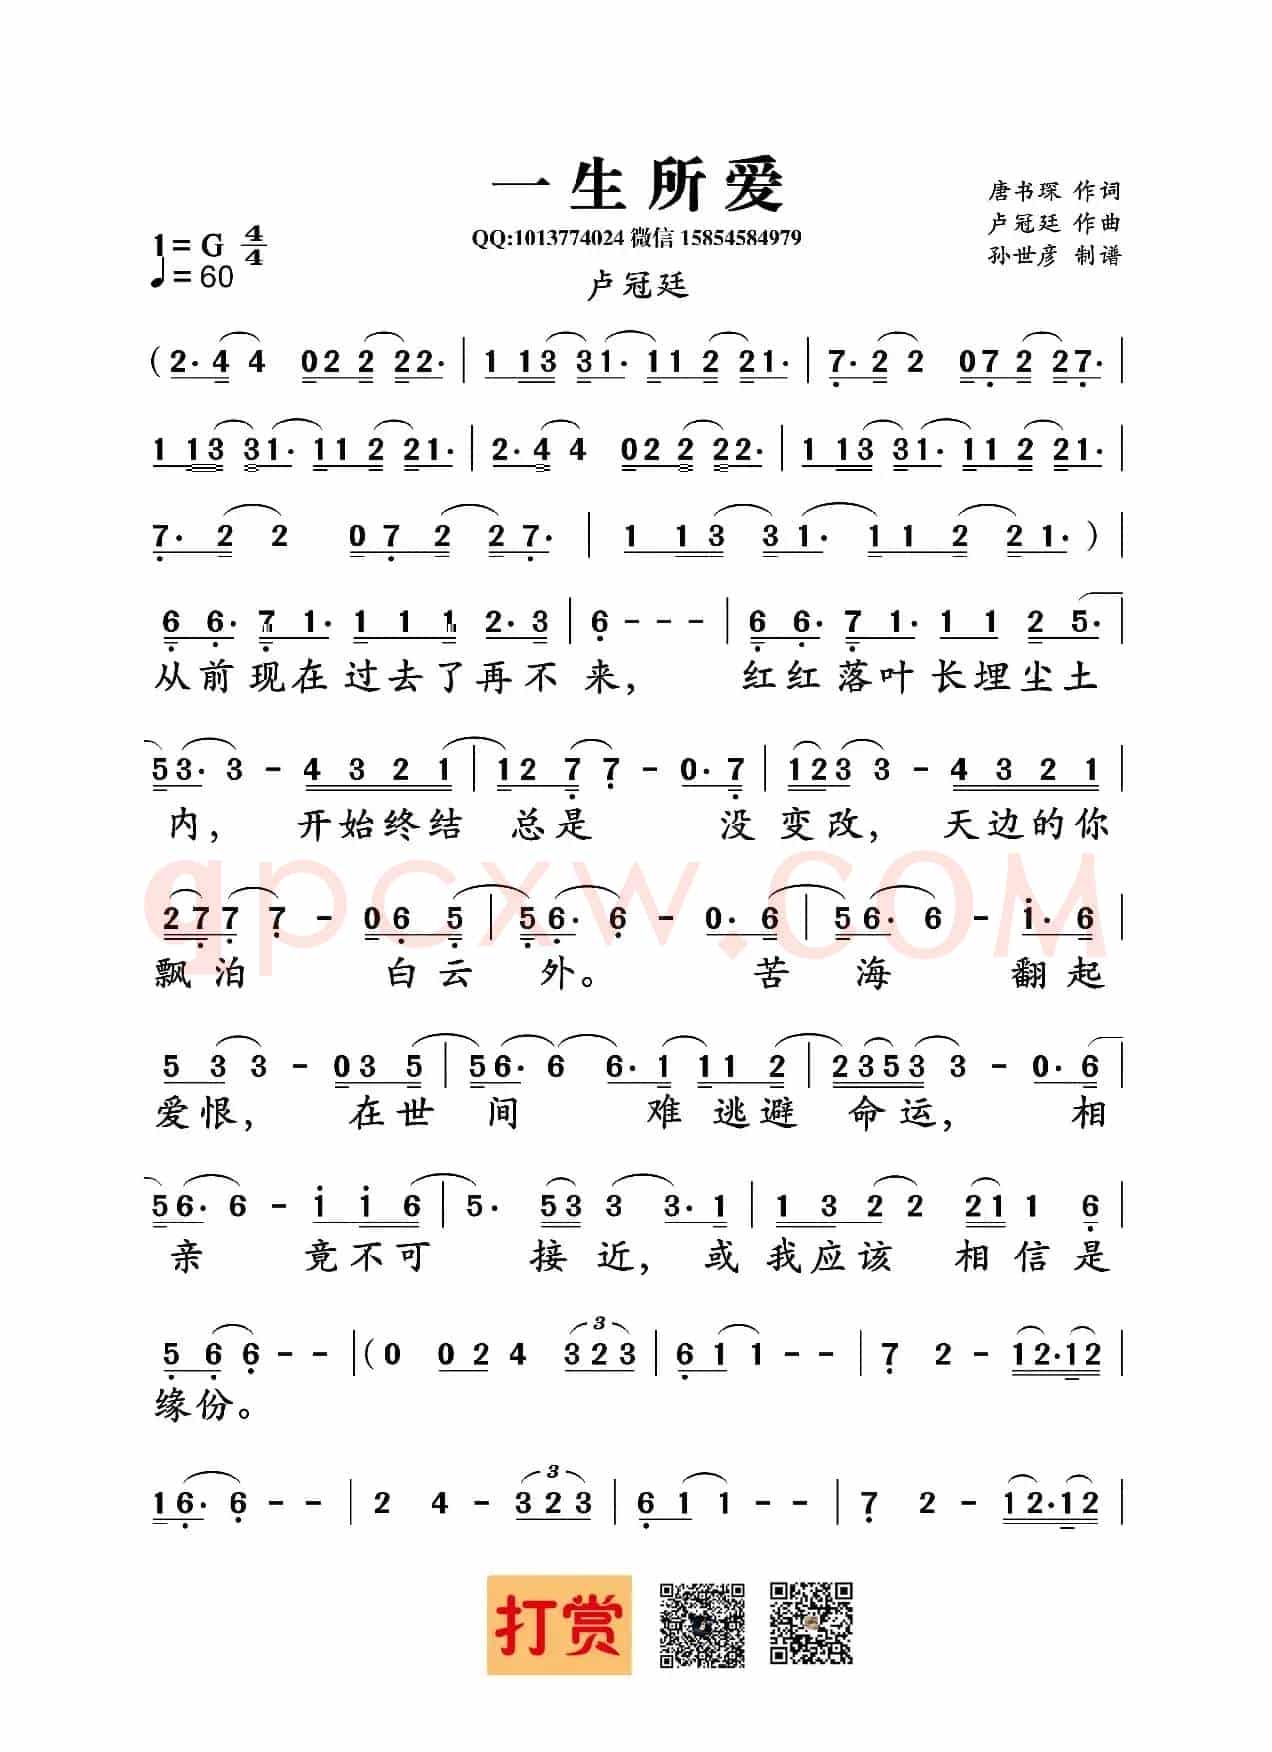 一生所爱
唐书琛 作词
QQ:1013774024 微信 15854584979
卢冠廷 作曲
1=G 4/4
孙世彦 制谱
♩=60
卢冠廷
(2·4 4 02 2 22· | 1 13 31· 11 2 21· | 7·2 2 07 2 27· |
1 13 31· 11 2 21· | 2·4 4 02 2 22· | 1 13 31· 11 2 21· |
7·2 2 07 2 27· | 1 13 31· 11 2 21·) |
6 6·7 1· 1 1 1 2·3 | 6 - - - | 6 6·7 1· 1 1 2 5· |
从前现在过去了再不来, 红红落叶长埋尘土
53·3 - 4 3 2 1 | 12 7 7 - 0·7 | 123 3 - 4 3 2 1 |
内, 开始终结 总是 没 变改, 天边的你
277 7 - 06 5 | 56·6 - 0·6 | 56·6 - i·6 |
飘泊 白云 外。 苦 海 翻起
5 3 3 - 03 5 | 56·6 6·1 11 2 | 2353 3 - 0·6 |
爱恨, 在世 间 难逃避 命运, 相
56·6 - i i 6 | 5· 53 3 3·1 | 1 3 2 2 21 1 6 |
亲 竟不可 接近, 或我应该 相信是
5 6 6 - - | (0 02 4 323 | 6 1 1 - - | 7 2 - 12·12 |
3
缘份。
16·6 - - | 2 4 - 323 | 6 1 1 - - | 7 2 - 12·12 |
3
qpcxw.COM
打赏